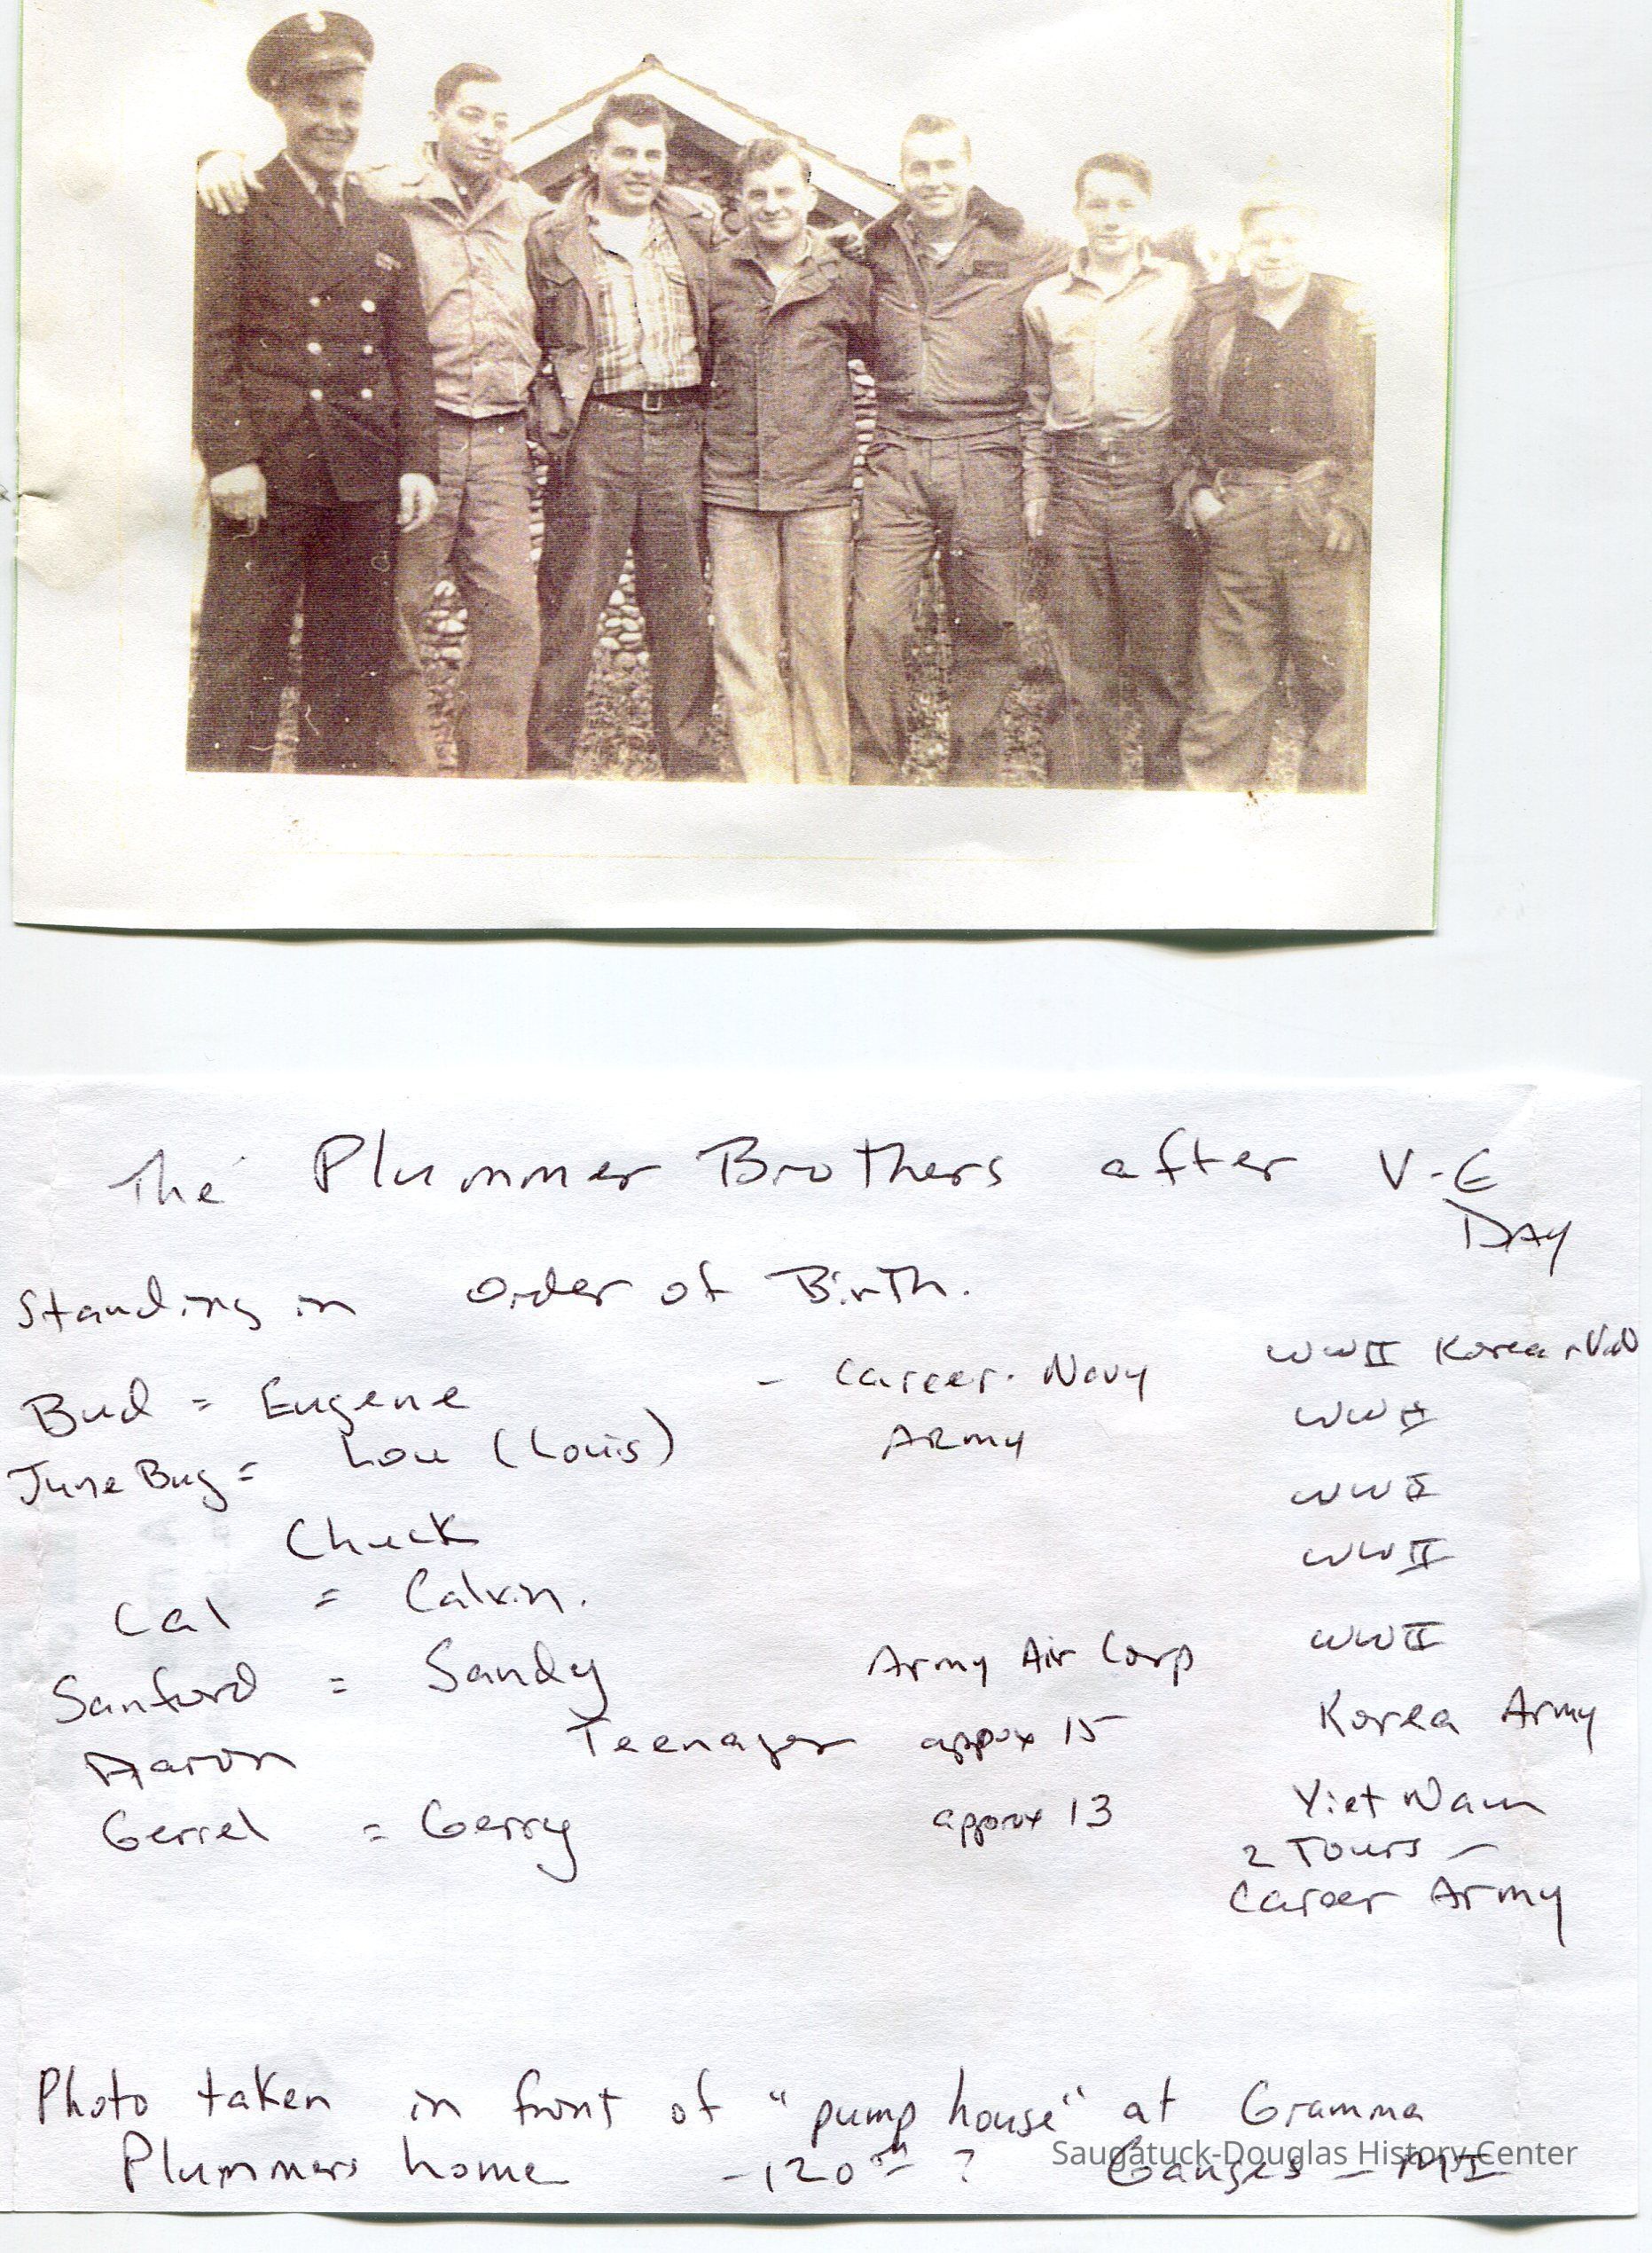 The Plummer Brothers after V-E
DAY
Standing in order of Birth.
Bud = Eugene - Career. Navy WWII Korea + VN
June Bug = Lou (Louis) ARmy WWII
Chuck WWII
Cal = Calvin. WWII
Sanford = Sandy Army Air Corp WWII
Aaron Teenager appox 15 Korea Army
Gerrel = Gerry approx 13 Viet Nam
2 Tours -
Career Army
Photo taken in front of "pump house" at Gramma
Plummers home - 120th ? Ganges - MI
Saugatuck-Douglas History Center